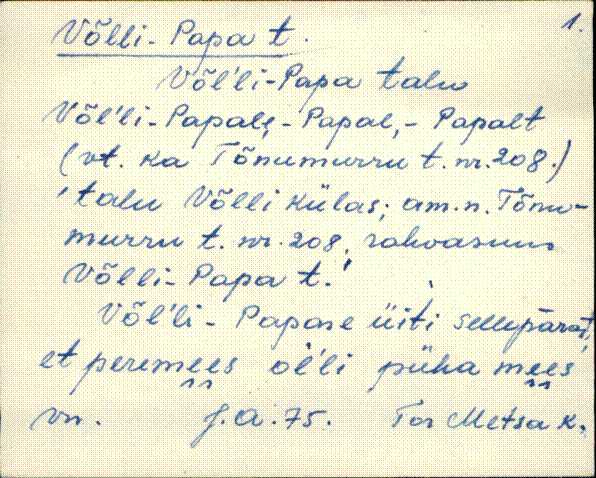 1.
Võlli-Papa t.
Võl'li-Papa talu
Võl'li-Papale, -Papal, -Papalt
(vt. ka Tõnumurru t. nr. 208.)
'talu Võlli külas; am. n. Tõnu-
murru t. nr. 208, rahvasuus
Võlli-Papa t.'
Võl'li-Papase üiti sellepärast,
et peremees ol'li püha mees
vn. J.A. 75. Tor Metsa k.